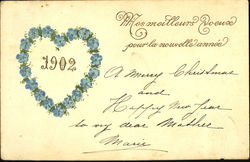 Mes meilleurs Voeux
pour la nouvelle année
1902
A Merry Christmas
and
Happy New Year
to my dear Mother
Marie